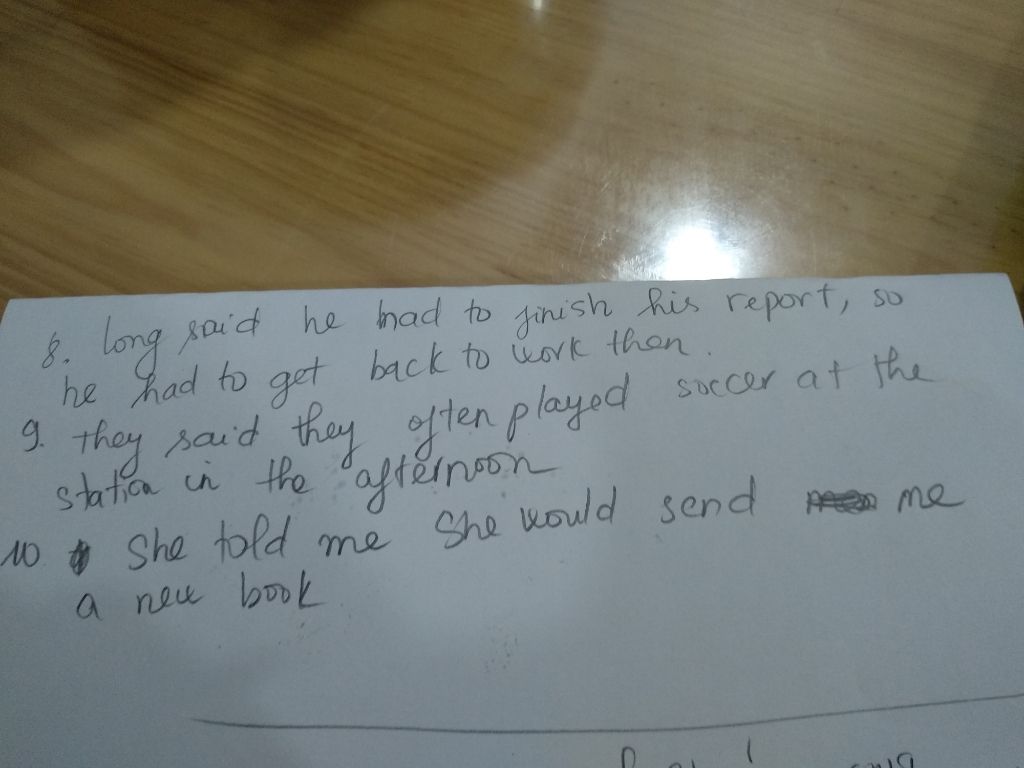 8. long said he had to finish his report, so
he had to get back to work then.
9. they said they often played soccer at the
station in the afternoon
10 She told me She would send me
a new book